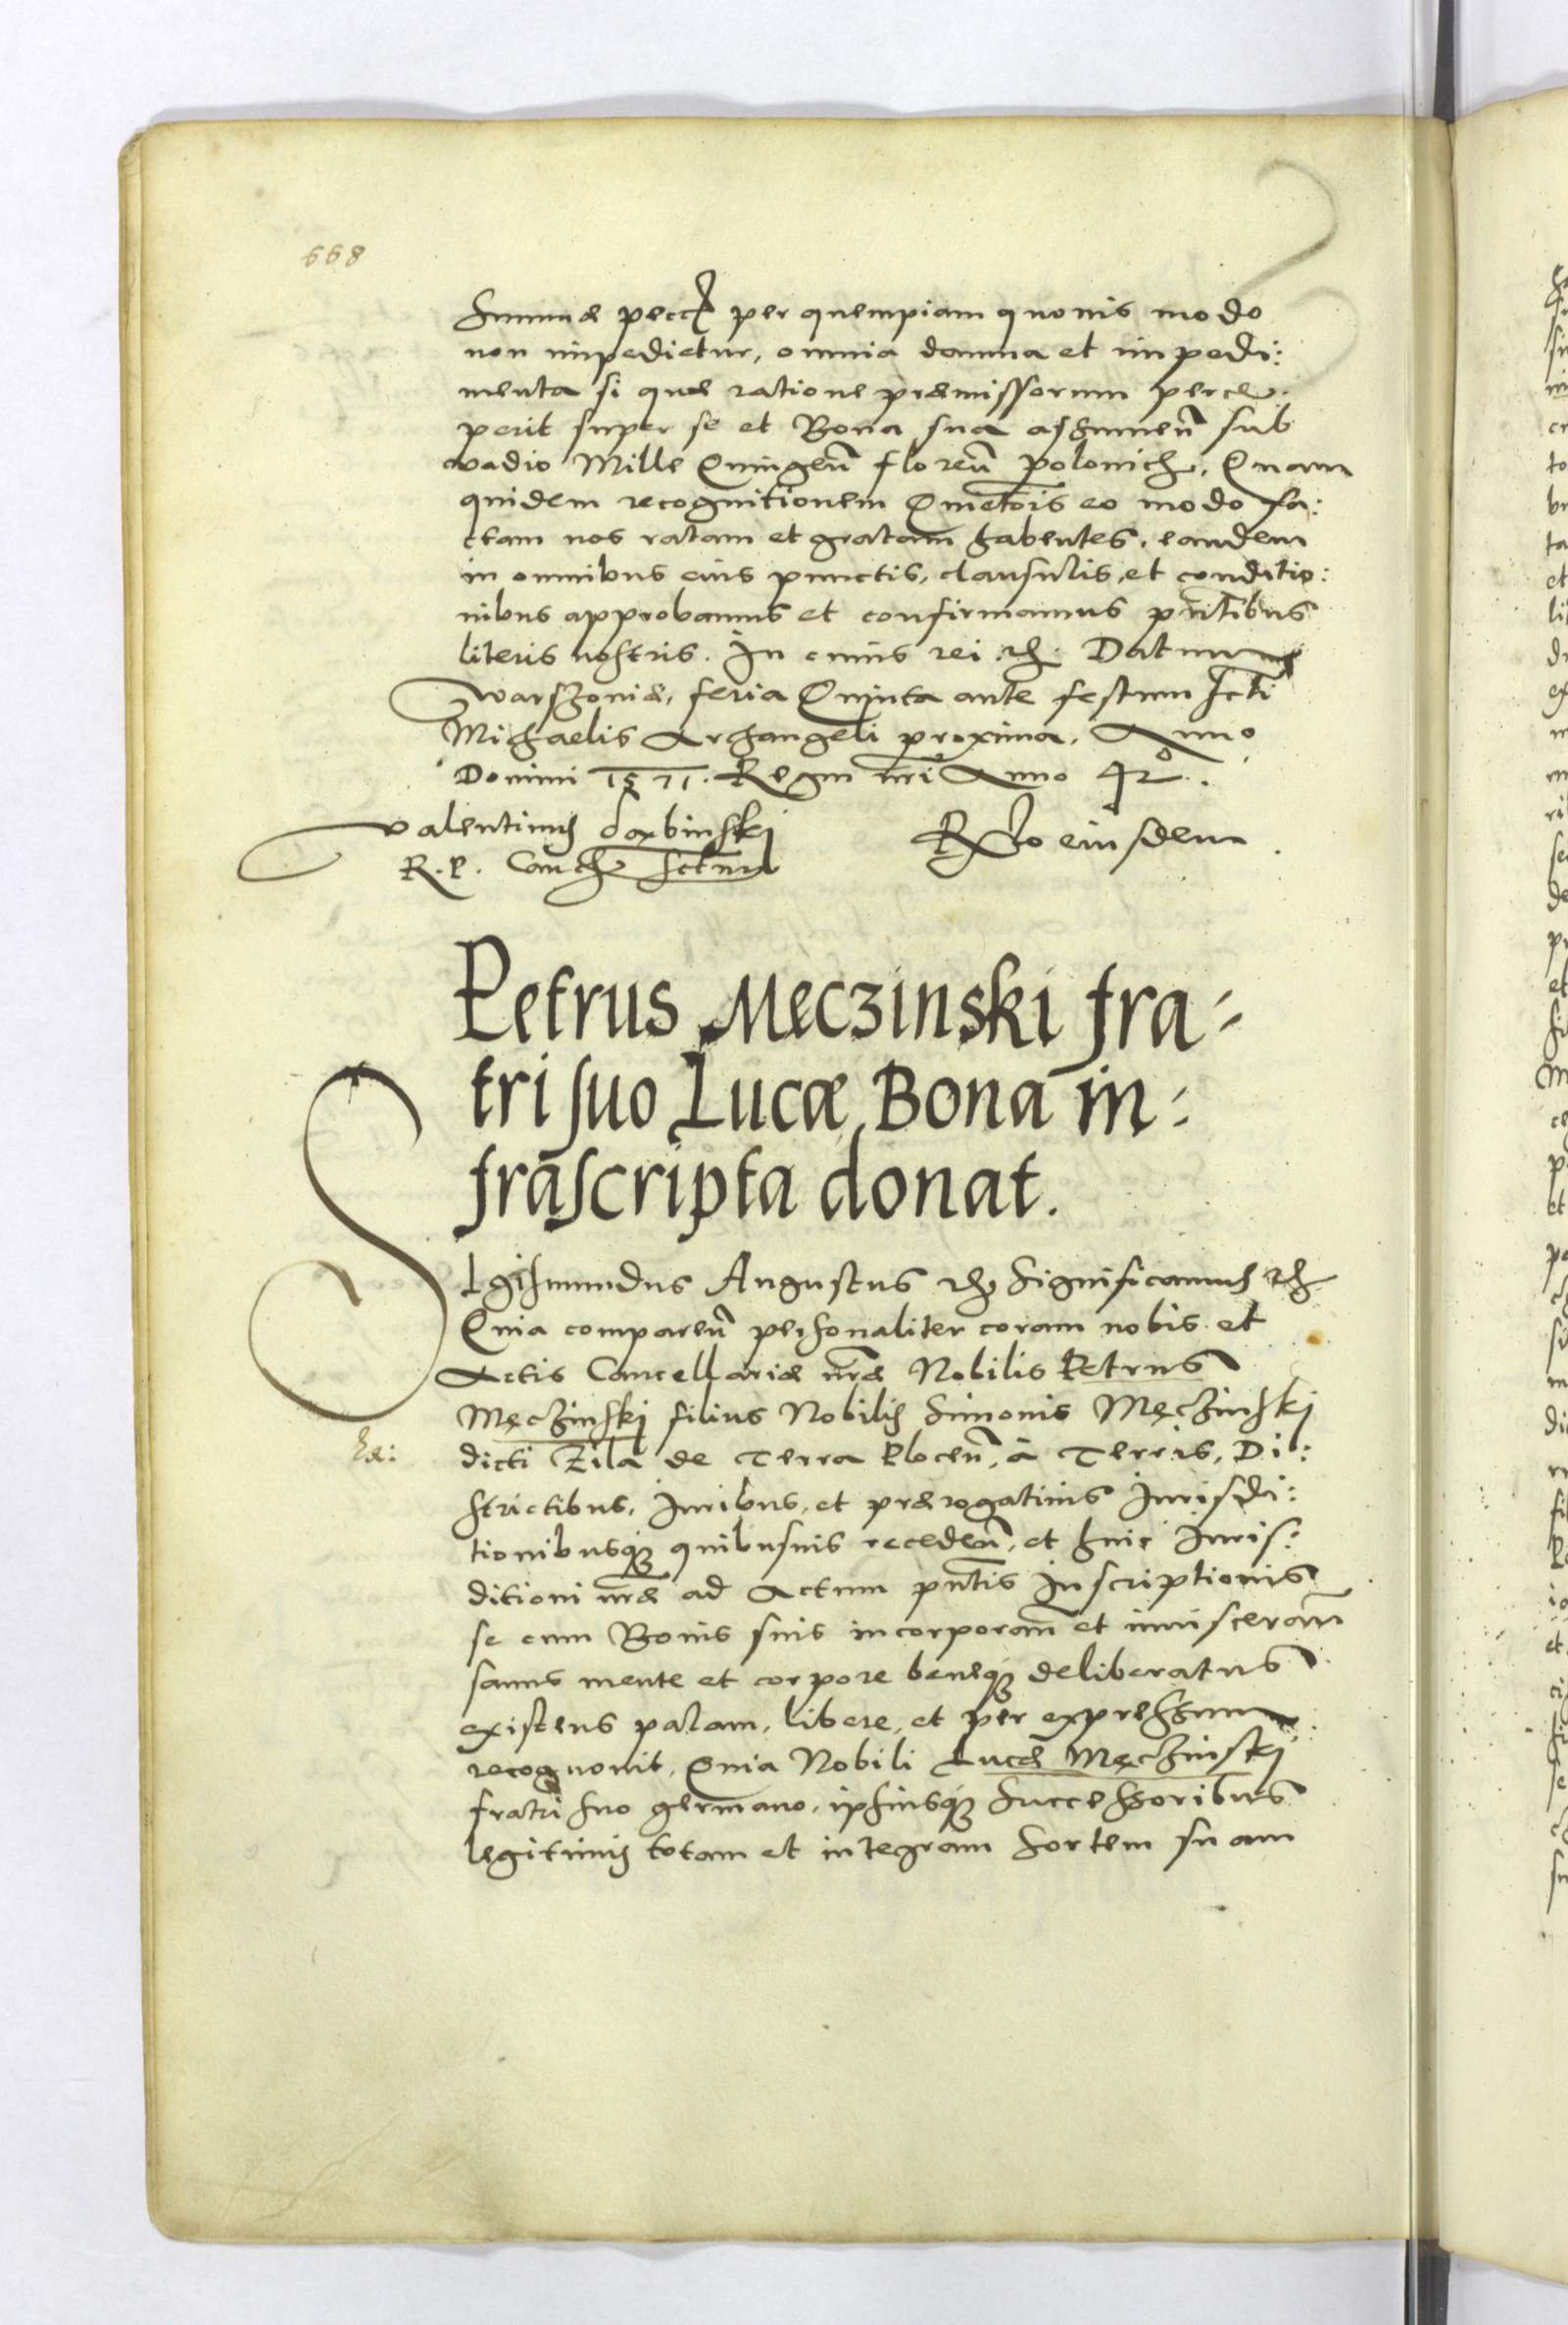 668
Summæ pecc̃ per quempiam quovis modo
non impedietur, omnia damna et impedi:
menta si quæ ratione præmissorum perce:
perit super se et Bona sua assumeñ sub
vadio Mille Quingeñ floreñ polonich, Quam
quidem recognitionem eo modo fa:
ctam nos ratam et gratam habentes, eandem
in omnibus eius punctis, clausulis, et conditio:
nibus approbamus et confirmamus pñtibus
literis nostris. In cuius rei etc. Datum
Warszoviæ, feria Quinta ante festum Scti
Michaelis Archangeli proxima, Anno
Domini 1571. Regni nr̃i Anno 42º.
Valentinus Daxbinskj
R. P. Canch
Rlo eiusdem
Petrus Meczinski fra-
tri suo Lucæ Bona in:
frascripta donat.
SIgismundus Augustus etc. Significamus etc.
Quia compareñ personaliter coram nobis et
Actis Cancellariæ nr̃æ Nobilis Petrus
Męczinskj filius Nobilis Simonis Męczinskj
dicti Zila de Terra Ploceñ, à Terris, Di:
strictibus, Iuribus, et prærogativis Iurisdi:
tionibusq quibusuis recedeñ, et huic Iuris:
ditioni nr̃æ ad Actum pñtis Inscriptionis
se cum Bonis suis incorporañ et inviscerañ
sanus mente et corpore beneq deliberatus
existens palam, libere, et per expressum
recognovit, Quia Nobili Lucæ Męczinskj
fratri suo germano, ipsiusq Successoribus
legitimis totam et integram Sortem suam